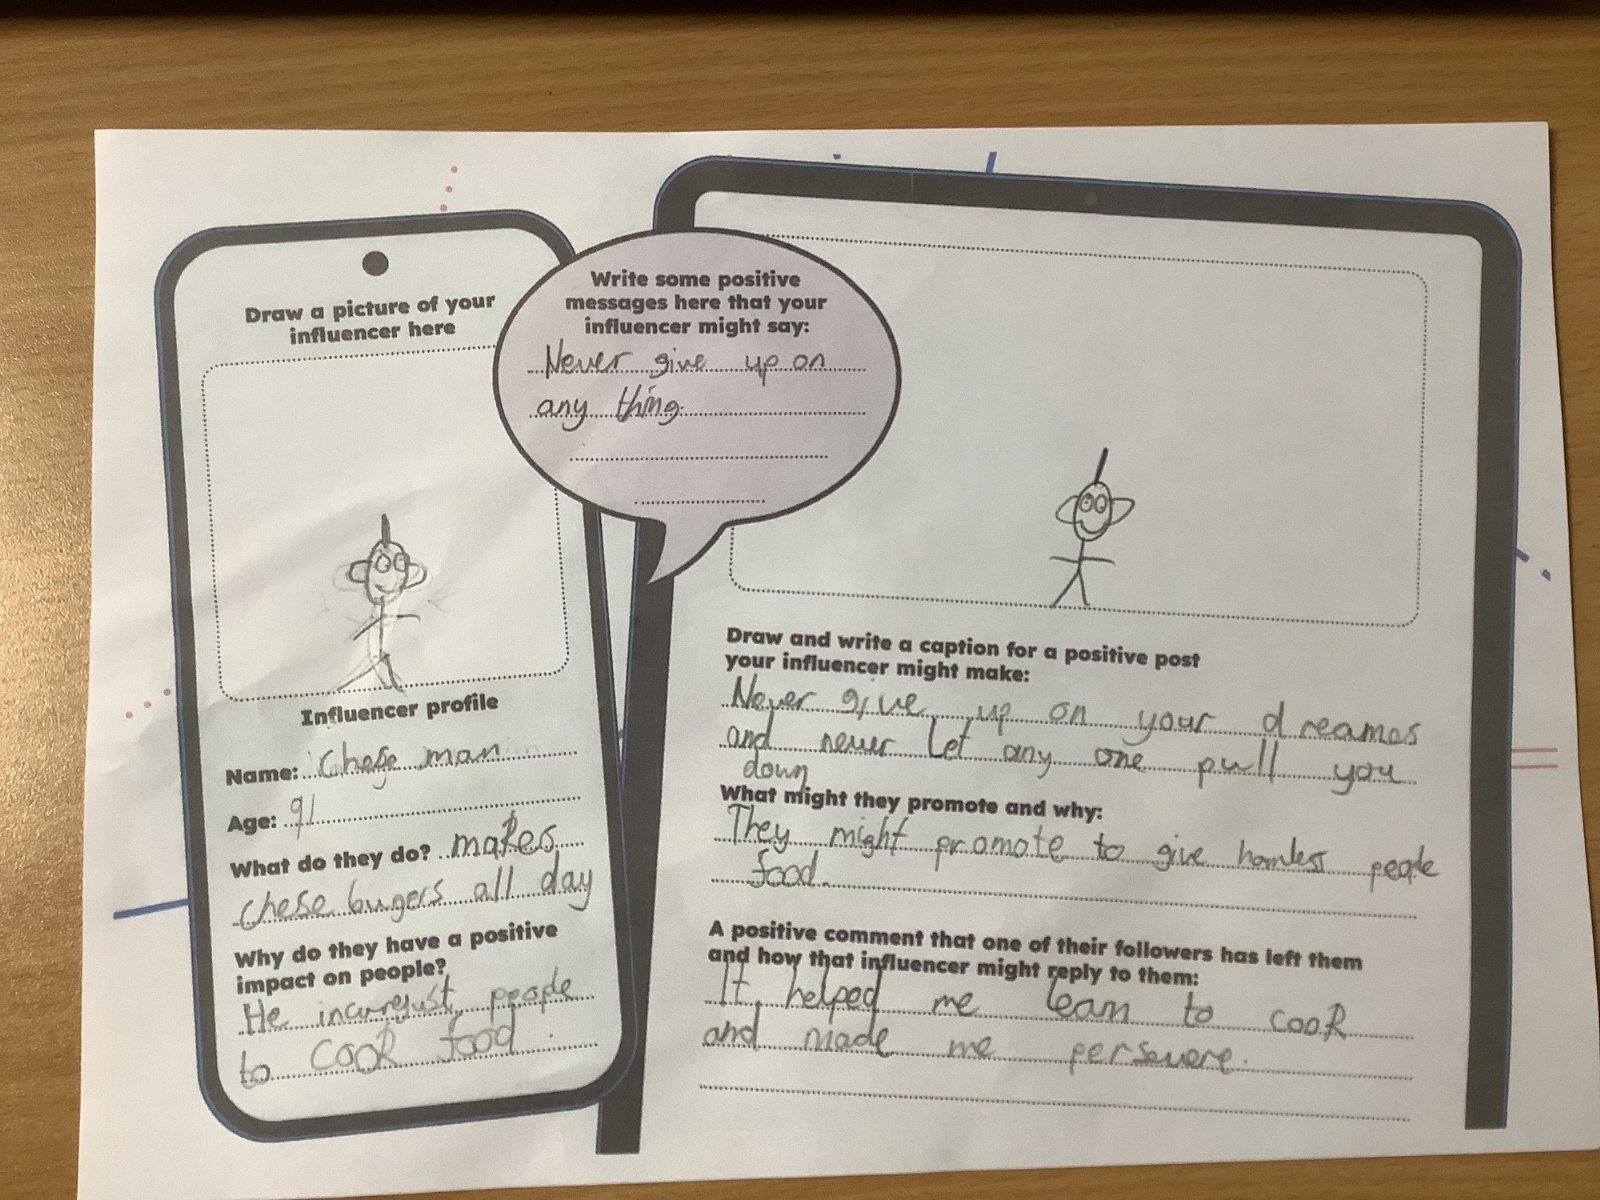 Draw a picture of your
influencer here
Influencer profile
Name: Chese man
Age: 91
What do they do? makes
chese bugers all day
Why do they have a positive
impact on people?
He incurejust people
to cook food.
Write some positive
messages here that your
influencer might say:
Never give up on
any thing.
Draw and write a caption for a positive post
your influencer might make:
Never give up on your dreames
and never let any one pull you
down
What might they promote and why:
They might promote to give homless people
food.
A positive comment that one of their followers has left them
and how that influencer might reply to them:
It helped me learn to cook
and made me persevere.